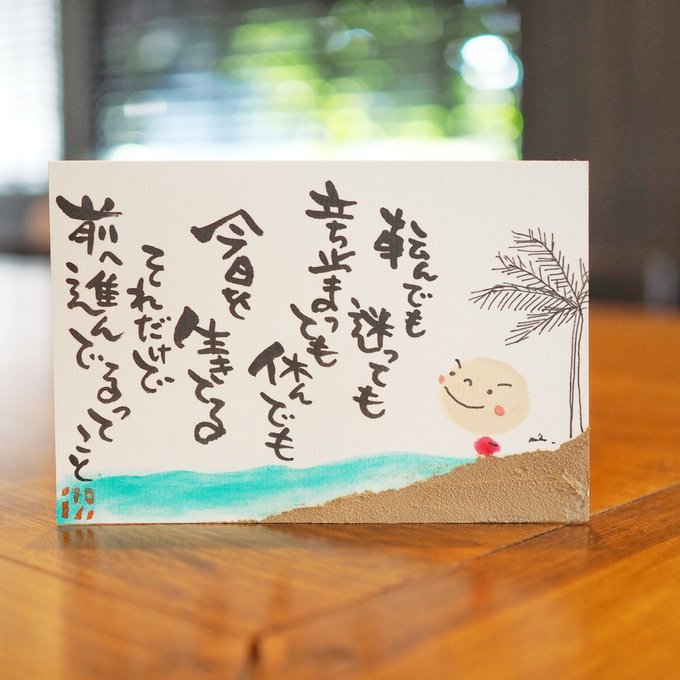 転んでも
迷っても
立ち止まっても
休んでも
今日を
生きてる
それだけで
前へ進んでるってこと